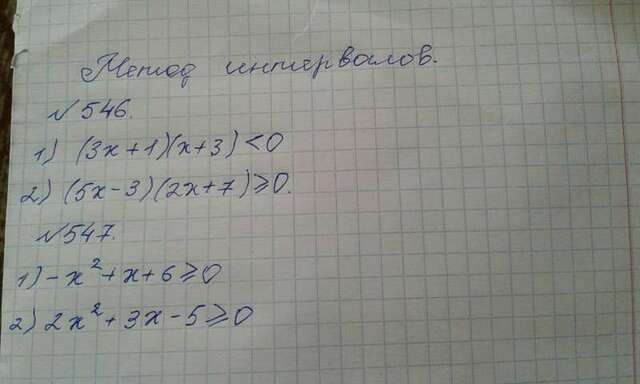 Метод интервалов.
№546.
1) (3x+1)(x+3)<0
2) (5x-3)(2x+7)⩾0.
№547.
1) -x²+x+6⩾0
2) 2x²+3x-5⩾0